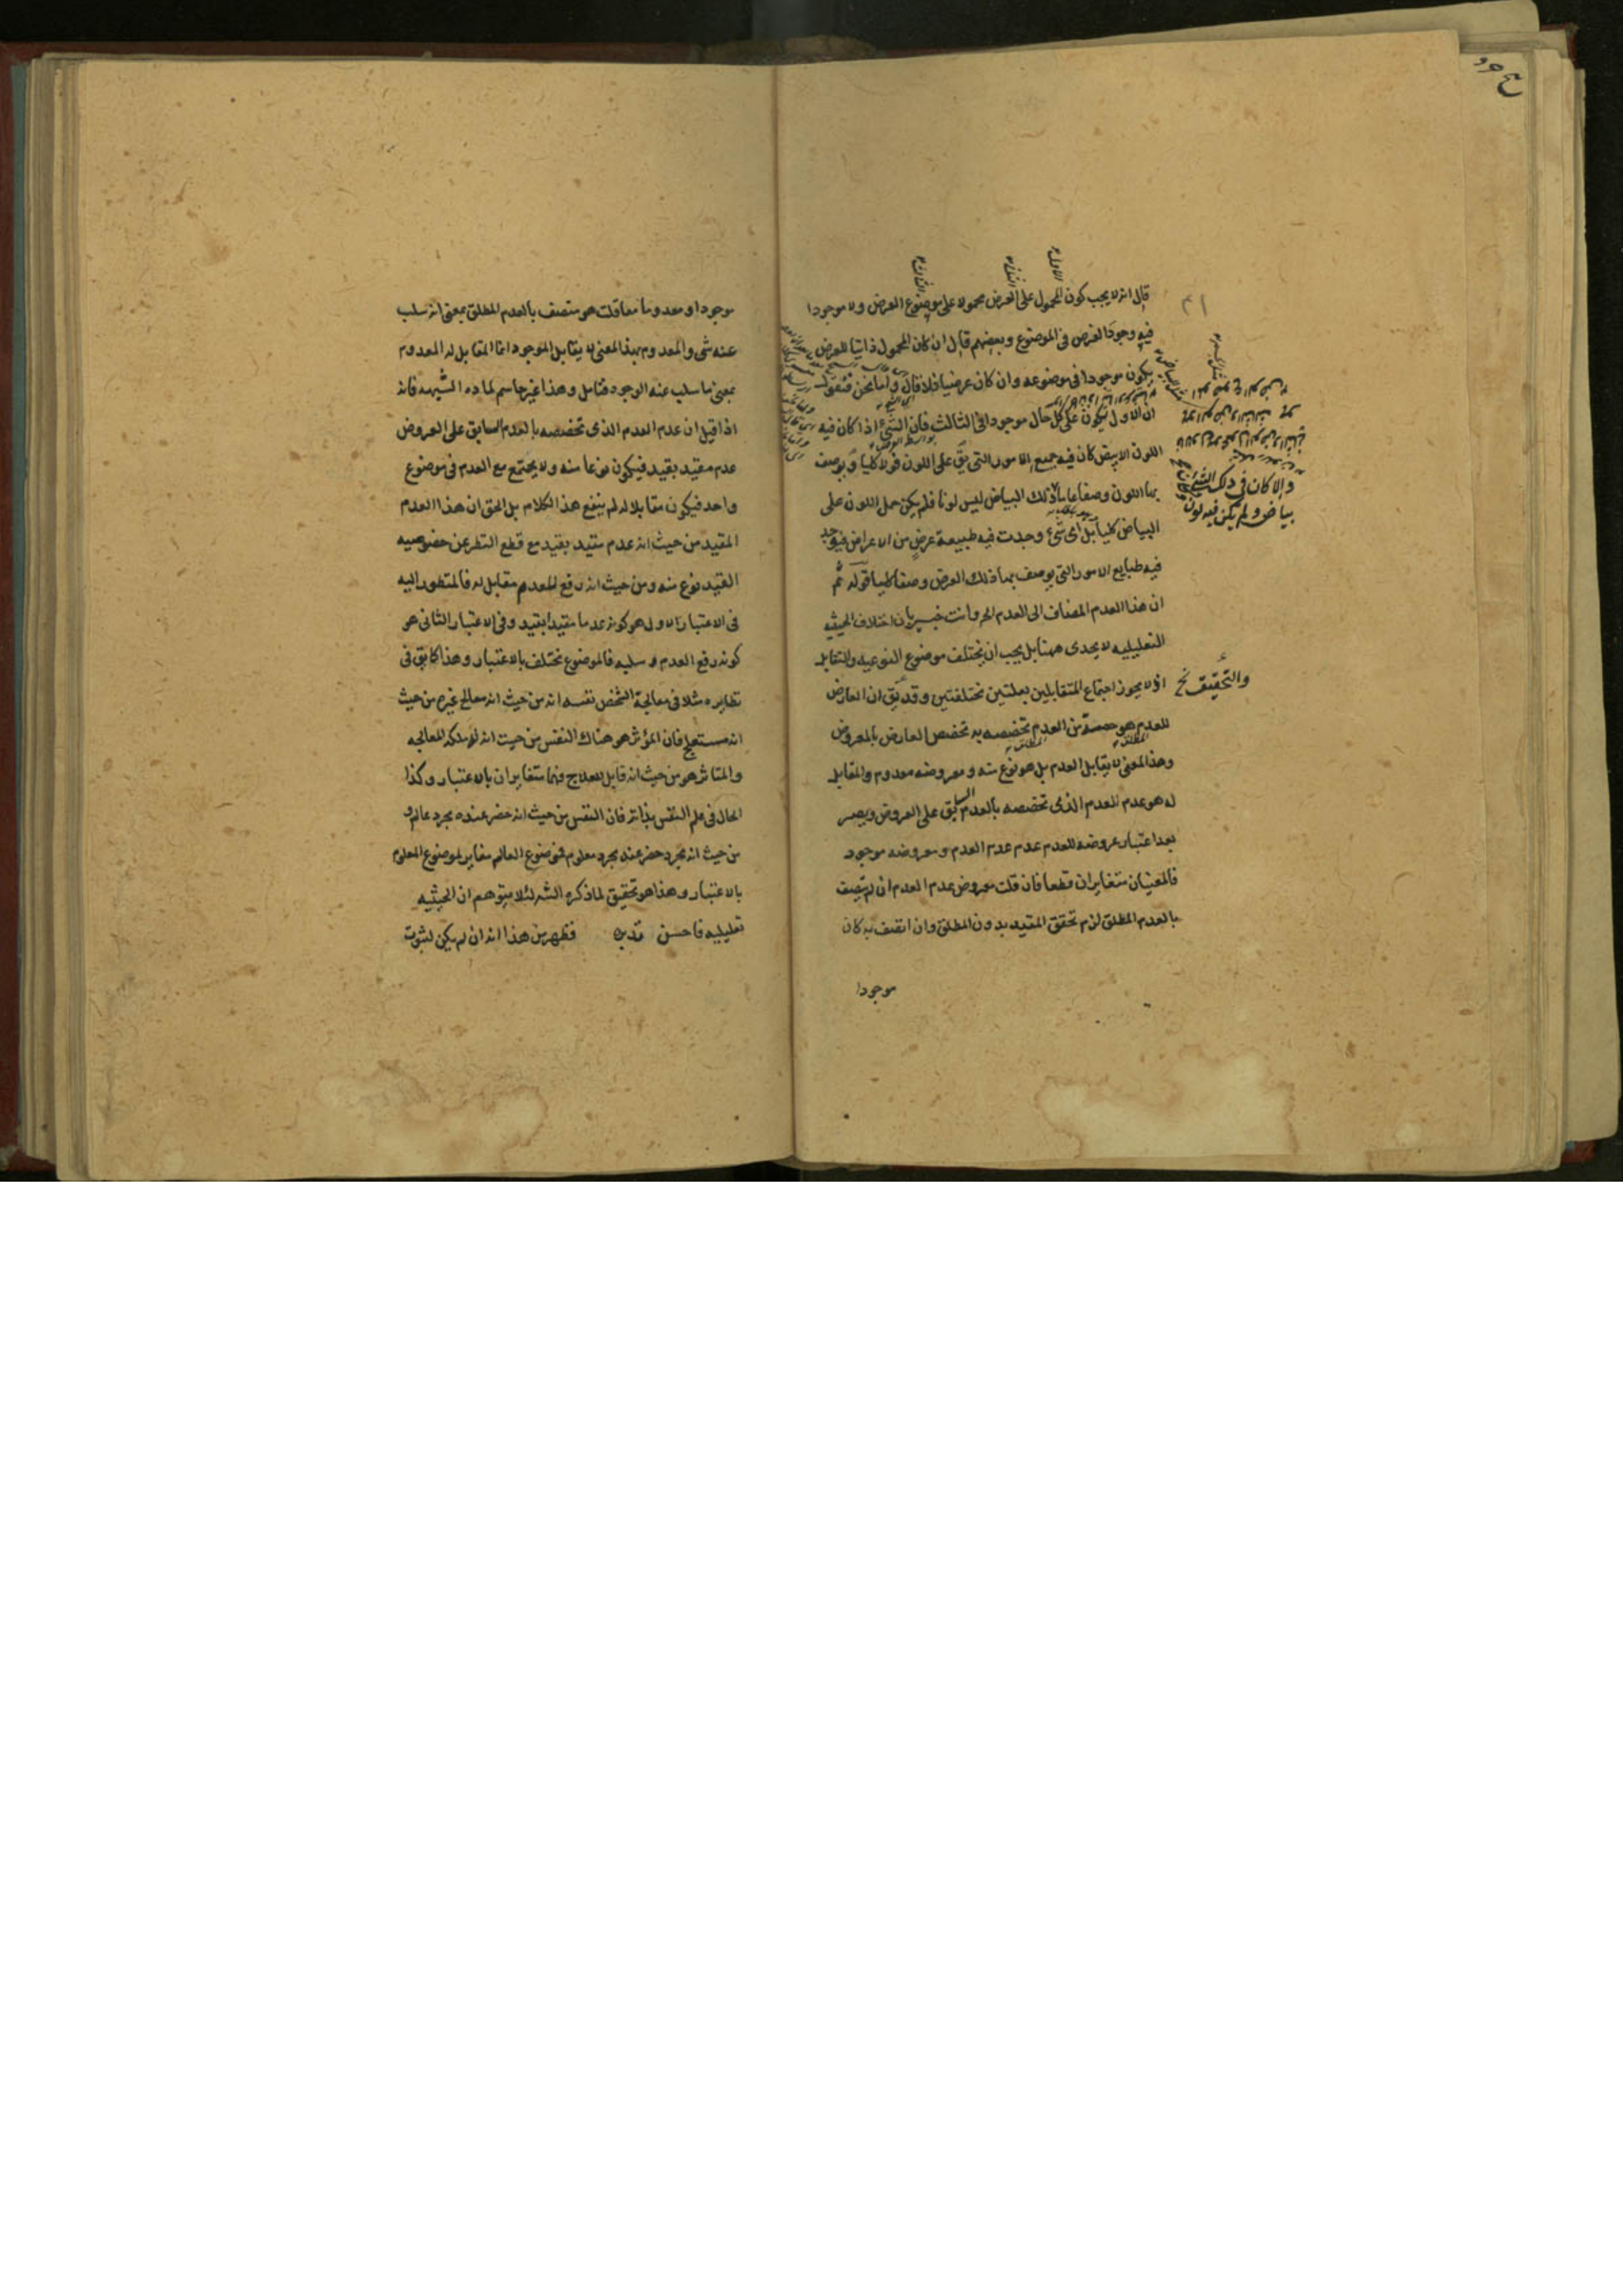 قال انه لا يجب كون المحمول على العرض محمولا على موضوع العرض ولا موجودا
فيه وجود العرض فى الموضوع وبعضهم قال ان كان المحمول ذاتيا للعرض
يكون موجودا فى موضوعه وان كان عرضيا فلا قال واما نحن فنقول
ان الاول يكون على كل حال موجودا فى الثالث فان الشئ اذا كان فيه
اللون الابيض كان فيه جميع الامور التى يق على اللون قولا كليا ويوصف
بها اللون وصفا عاما لان ذلك البياض ليس لونا فلم يكن حمل اللون على
البياض كليا بل اى شئ وجدت فيه طبيعة عرض من الاعراض فيوجد
فيه طبايع الامور التى يوصف بها ذلك العرض وصفا كليا قوله ثم
ان هذا العدم المضاف الى العدم الخ وانت خبير بان اختلاف الحيثيه
التعليليه لا يجدى ههنا بل يجب ان يختلف موضوع النوعيه والتقابل
اذ لا يجوز اجتماع المتقابلين بعلتين مختلفتين وقد يق ان العارض
للعدم هو حصة من العدم تخصصه به تخصص العارض بالمعروض
وهذا المعنى لا يقابل العدم بل هو نوع منه ومعروضه معدوم والمقابل
له هو عدم العدم الذى تخصصه بالعدم السابق على العروض ويصير
بعد اعتبار عروضه للعدم عدم عدم العدم ومعروضه موجود
فالمعنيان متغايران قطعا فان قلت معروض عدم العدم ان لم يتصف
بالعدم المطلق لزم تحقق المقيد بدون المطلق وان اتصف به كان
موجودا
والتحقيق نخ
والا كان فى ذلك الشئ
بياض ولم يكن فيه لون
موجودا ومعدوما معا قلت هو متصف بالعدم المطلق بمعنى انه سلب
عنه شى والمعدوم بهذا المعنى لا يقابل الموجود انما المقابل له المعدوم
بمعنى ما سلب عنه الوجود فتامل وهذا غير حاسم لماده الشبهه فانه
اذا قيل ان عدم العدم الذى تخصصه بالعدم السابق على العروض
عدم مقيد بقيد فيكون نوعا منه ولا يجتمع مع العدم فى موضوع
واحد فيكون مقابلا له لم ينفع هذا الكلام بل الحق ان هذا العدم
المقيد من حيث انه عدم مقيد بقيد مع قطع النظر عن خصوصيه
القيد نوع منه ومن حيث انه رفع للعدم مقابل له فالمنظور اليه
فى الاعتبار الاول هو كونه عدما مقيدا بقيد وفى الاعتبار الثانى هو
كونه رفع العدم وسلبه فالموضوع مختلف بالاعتبار وهذا كما يق فى
نظايره مثلا فى معالجة الشخص نفسه انه من حيث انه معالج غيره من حيث
انه مستعلج فان المؤثر هو هناك النفس من حيث انه له ملكه المعالجه
والمتاثر هو من حيث انه قابل للعلاج فهما متغايران بالاعتبار وكذا
الحال فى علم النفس بذاته فان النفس من حيث انه حضر عنده مجرد عالم و
من حيث انه مجرد حضر عند مجرد معلوم فموضوع العالم مغاير لموضوع المعلوم
بالاعتبار وهذا هو تحقيق لما ذكره الشه لئلا يتوهم ان الحيثيه
تعليليه فاحسن تدبره فظهر من هذا انه ان لم يكن لثبوت